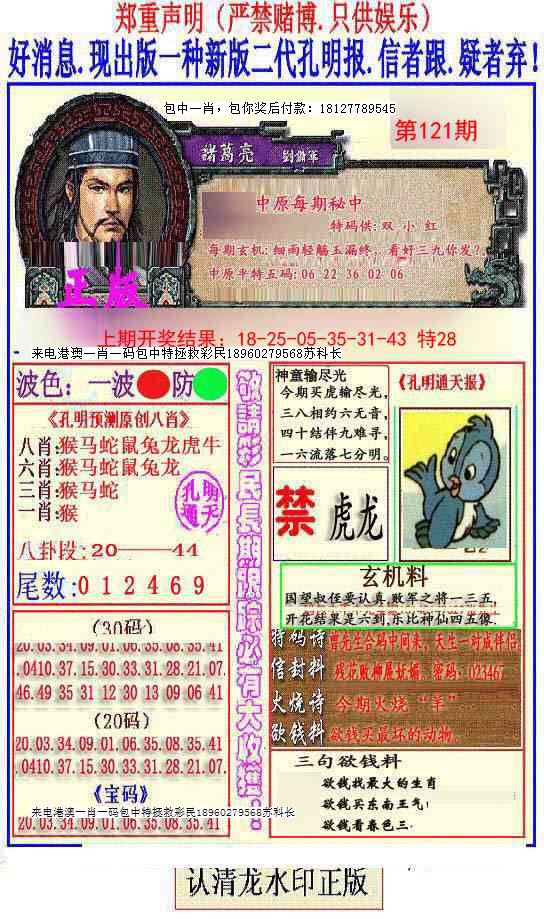 郑重声明（严禁赌博.只供娱乐）
好消息.现出版一种新版二代孔明报.信者跟.疑者弃!
包中一肖，包你奖后付款：18127789545
第121期
諸葛亮
中原每期秘中
特码供:双 小 红
每期玄机:细雨轻觞玉漏终，看好三九你发?
中原平特五码:06 22 36 02 06
正版
上期开奖结果：18-25-05-35-31-43 特28
来电港澳一肖一码包中特拯救彩民18960279568苏科长
波色：一波 防
《孔明预测原创八肖》
八肖:猴马蛇鼠兔龙虎牛
六肖:猴马蛇鼠兔龙
三肖:猴马蛇
一肖:猴
孔明
通天
八卦段:20——44
尾数:0 1 2 4 6 9
(30码)
20.03.34.09.01.06.35.08.35.41
.0410.37.15.30.33.31.28.21.07.
46.49 35 31 12 30 13 09 06 41
(20码)
20.03.34.09.01.06.35.08.35.41
.0410.37.15.30.33.31.28.21.07.
《宝码》
来电港澳一肖一码包中特拯救彩民18960279568苏科长
20.03.34.09.01.06.35.08.35.41
敬請彩民長期跟踪必有大收獲！
神童输尽光
今期买虎输尽光，
三八相约六无音，
四十结伴九难寻，
一六流落七分明。
《孔明通天报》
禁 虎龙
玄机料
国望叔侄要认真,败军之将一三五，
开花结果是六到,东比神仙四五像.
特码诗 曹先生合码中间来，天生一对成伴侣
信封料 残花败柳展妩媚，密码：023467
火烧诗 今期火烧“羊”
欲钱料 欲钱买最坏的动物.
三句欲钱料
欲钱找最大的生肖
欲钱买东南王气！
欲钱看春色三.
认清龙水印正版